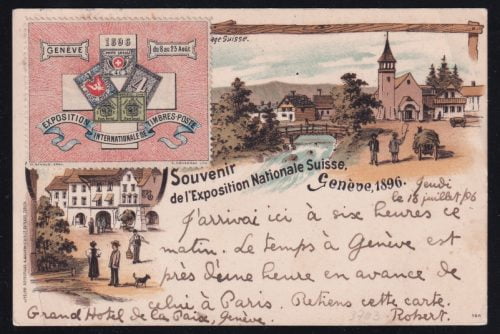 GENÈVE
1896
du 8 au 23 Août
EXPOSITION
INTERNATIONALE DE
TIMBRES-POSTE
age Suisse.
Souvenir
de l'Exposition Nationale Suisse,
Genève, 1896.
Jeudi
le 16 juillet /96
J'arrivai ici à six heures ce
matin. Le temps à Genève est
près d'une heure en avance de
celui à Paris. Retiens cette carte.
Grand Hotel de la Paix, Genève
Robert.